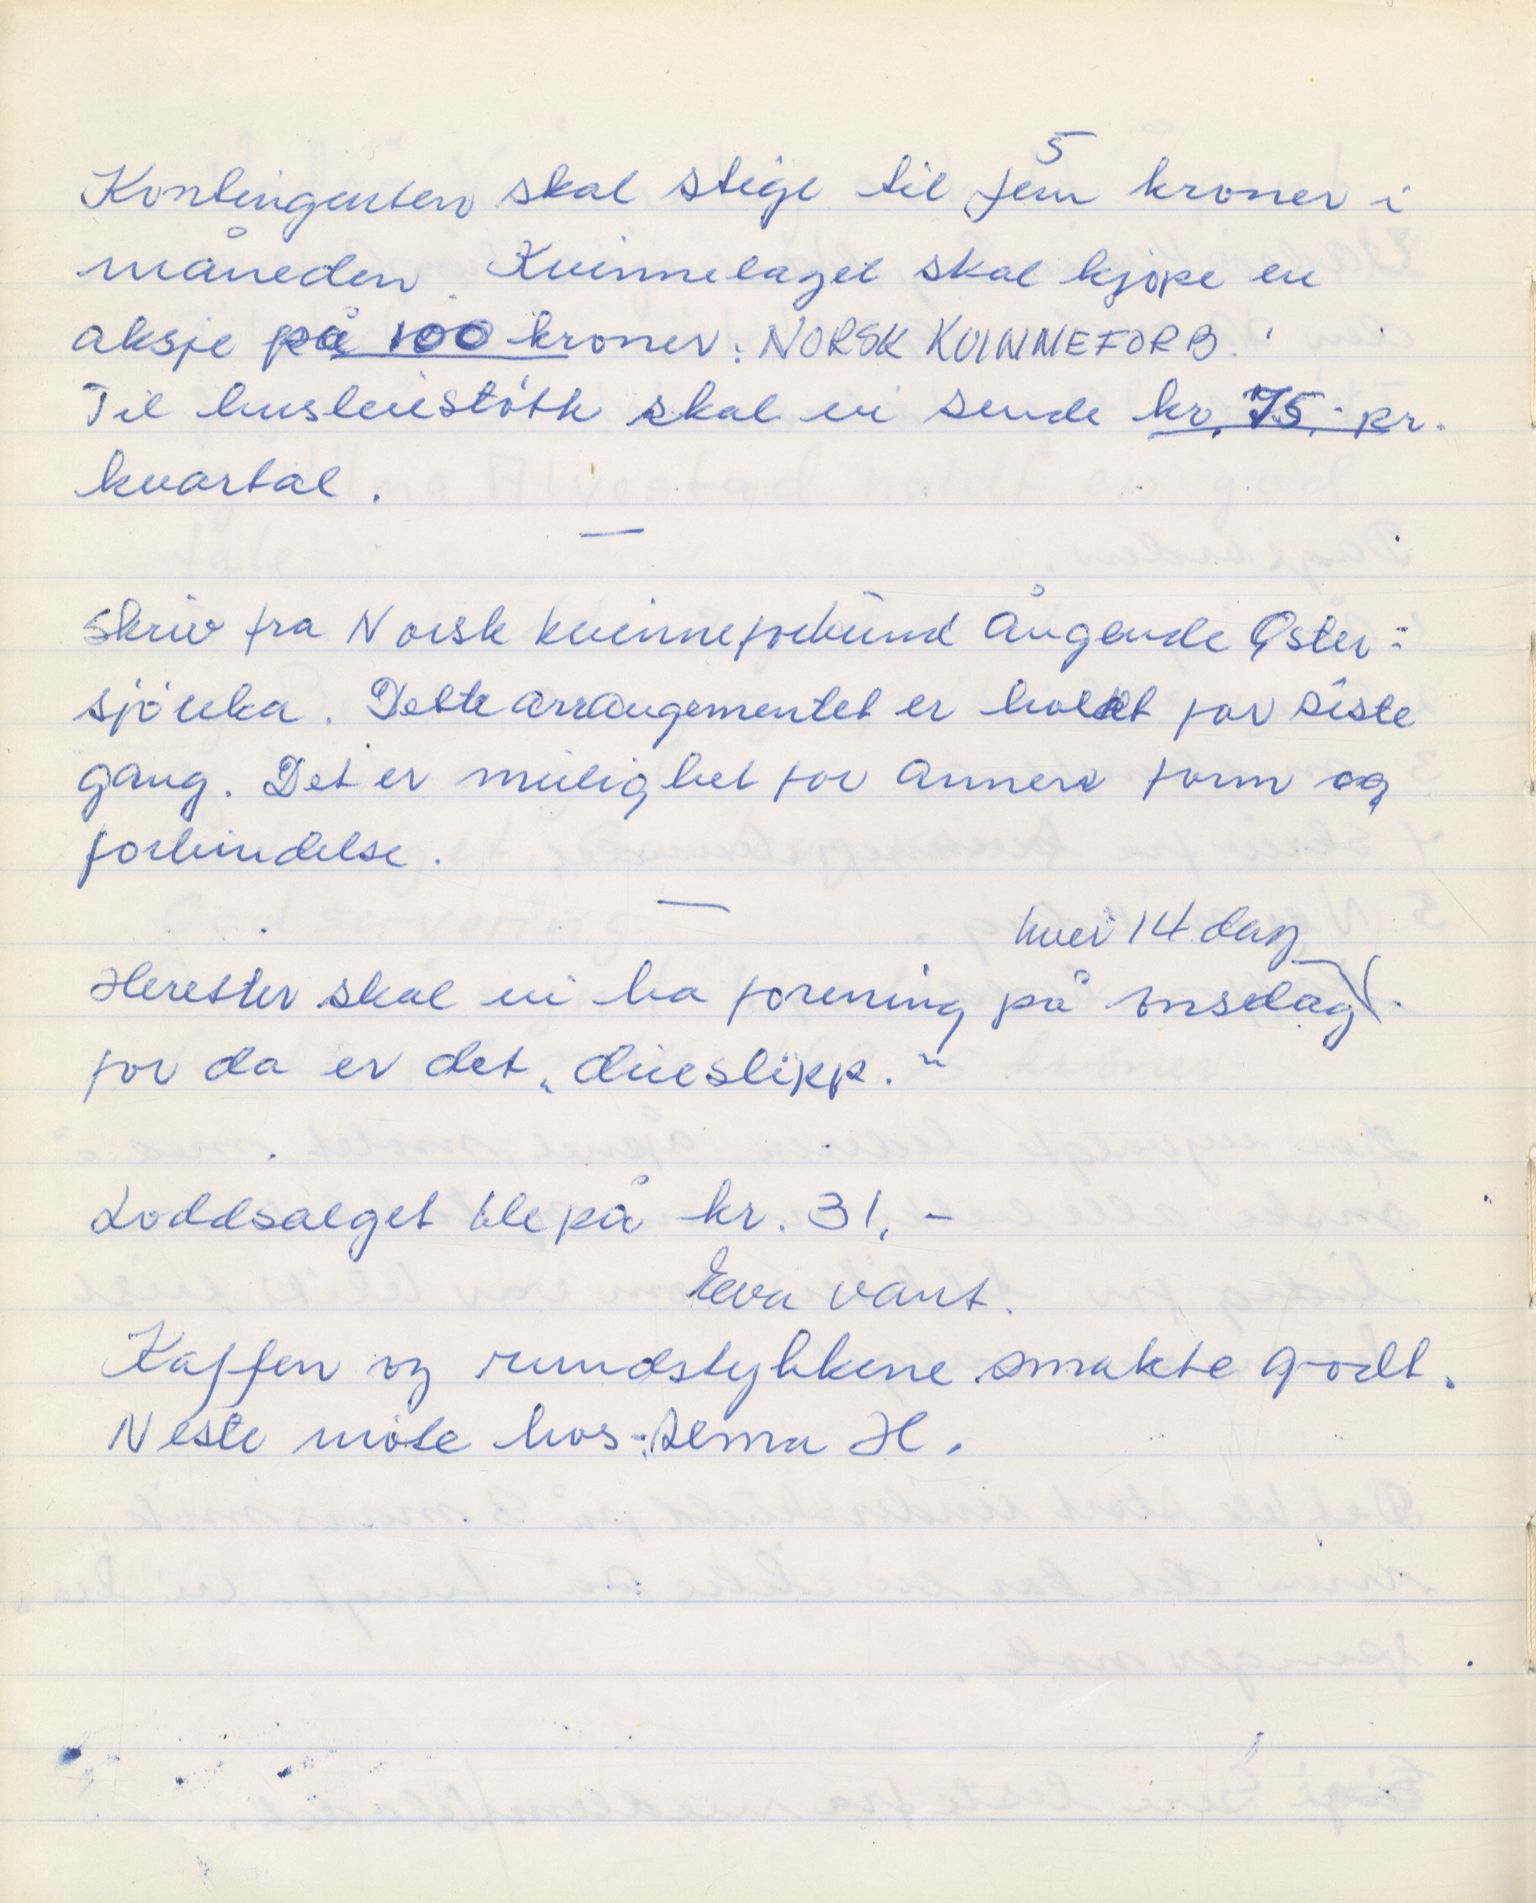 5
Kontingenten skal stige til fem kroner i
måneden. Kvinnelaget skal kjøpe en
aksje på 100 kroner: NORSK KVINNEFORB.
Til husleiestöth skal vi sende kr. 75,- pr.
kvartal.
—
Skriv fra Norsk kvinneforbund Ångende Öster=
sjöuka. Dette arrangementet er holdt for siste
gang. Det er mulighet for annen form og
forbindelse.
—
hver 14 dag
Herester skal vi ha forening på onsdag.
for da er det „dueslipp."
Loddsalget ble på kr. 31,-
Eva vant.
Kaffen og rundstykkene smakte godt.
Neste möte hos: Alma H.